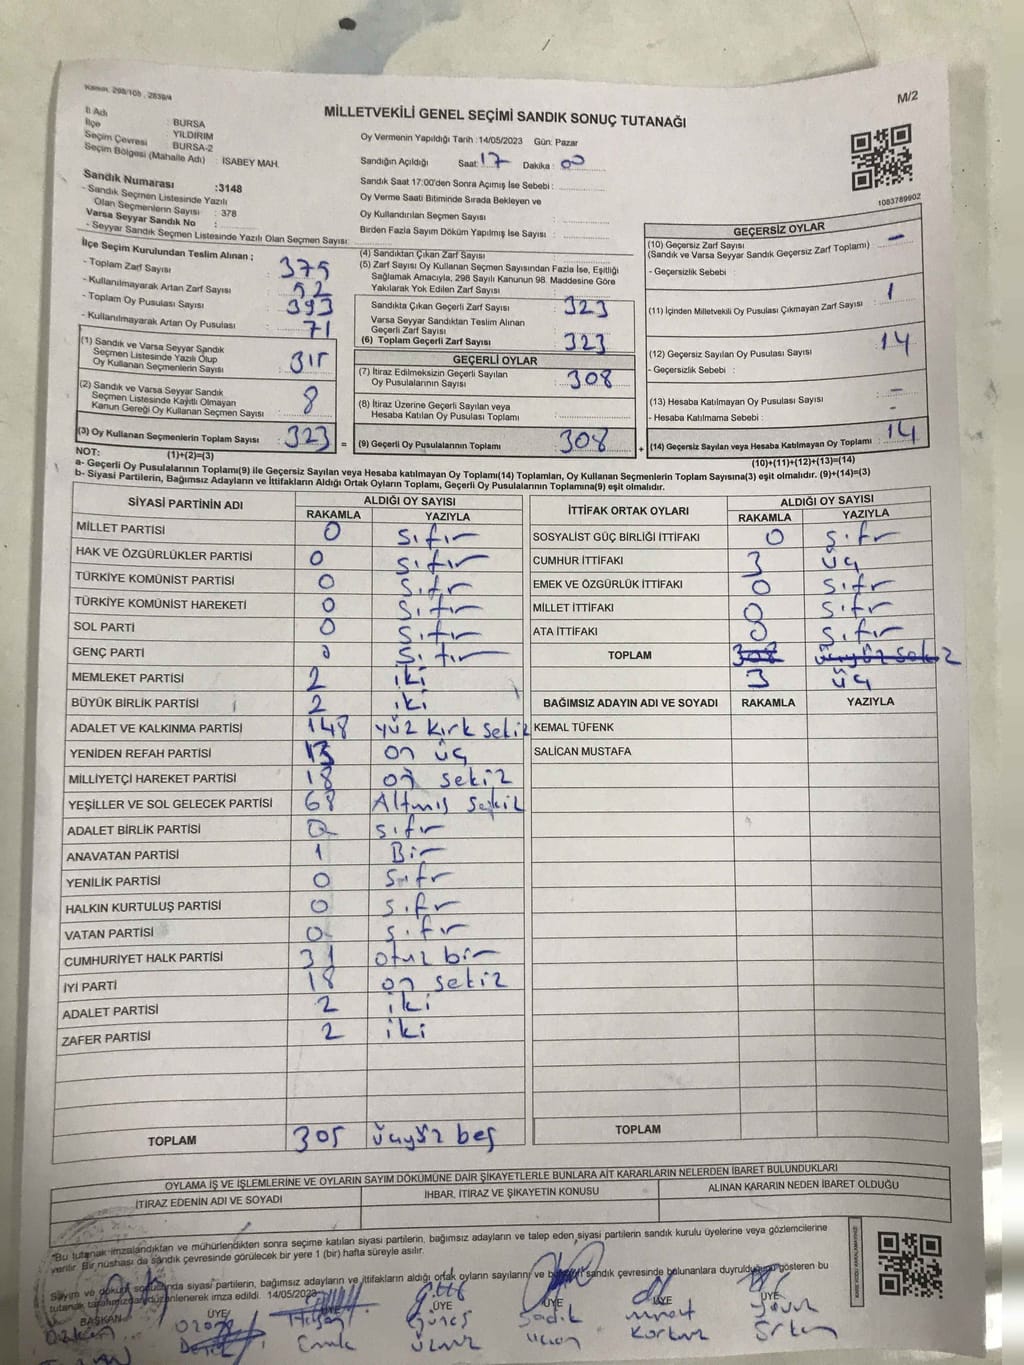 Kanun, 298/105 , 2839/4
M/2
MİLLETVEKİLİ GENEL SEÇİMİ SANDIK SONUÇ TUTANAĞI
İl Adı : BURSA
İlçe : YILDIRIM
Seçim Çevresi : BURSA-2
Seçim Bölgesi (Mahalle Adı) : ISABEY MAH.
Sandık Numarası :3148
- Sandık Seçmen Listesinde Yazılı
Olan Seçmenlerin Sayısı : 378
Varsa Seyyar Sandık No :
- Seyyar Sandık Seçmen Listesinde Yazılı Olan Seçmen Sayısı:
Oy Vermenin Yapıldığı Tarih :14/05/2023 Gün: Pazar
Sandığın Açıldığı Saat: 17 Dakika : 00
Sandık Saat 17:00'den Sonra Açımış İse Sebebi :
Oy Verme Saati Bitiminde Sırada Bekleyen ve
Oy Kullandırılan Seçmen Sayısı
Birden Fazla Sayım Döküm Yapılmış İse Sayısı :
1083789902
İlçe Seçim Kurulundan Teslim Alınan ;
- Toplam Zarf Sayısı : 375
- Kullanılmayarak Artan Zarf Sayısı : 52
- Toplam Oy Pusulası Sayısı : 393
- Kullanılmayarak Artan Oy Pusulası : 71
(1) Sandık ve Varsa Seyyar Sandık
Seçmen Listesinde Yazılı Olup
Oy Kullanan Seçmenlerin Sayısı : 315
(2) Sandık ve Varsa Seyyar Sandık
Seçmen Listesinde Kayıtlı Olmayan
Kanun Gereği Oy Kullanan Seçmen Sayısı : 8
(3) Oy Kullanan Seçmenlerin Toplam Sayısı : 323
(4) Sandıktan Çıkan Zarf Sayısı :
(5) Zarf Sayısı Oy Kullanan Seçmen Sayısından Fazla İse, Eşitliği
Sağlamak Amacıyla, 298 Sayılı Kanunun 98. Maddesine Göre
Yakılarak Yok Edilen Zarf Sayısı :
Sandıkta Çıkan Geçerli Zarf Sayısı : 323
Varsa Seyyar Sandıktan Teslim Alınan
Geçerli Zarf Sayısı :
(6) Toplam Geçerli Zarf Sayısı : 323
GEÇERLİ OYLAR
(7) İtiraz Edilmeksizin Geçerli Sayılan
Oy Pusulalarının Sayısı : 308
(8) İtiraz Üzerine Geçerli Sayılan veya
Hesaba Katılan Oy Pusulası Toplamı :
= (9) Geçerli Oy Pusulalarının Toplamı : 308
GEÇERSİZ OYLAR
(10) Geçersiz Zarf Sayısı : -
(Sandık ve Varsa Seyyar Sandık Geçersiz Zarf Toplamı)
- Geçersizlik Sebebi :
(11) İçinden Milletvekili Oy Pusulası Çıkmayan Zarf Sayısı : 1
(12) Geçersiz Sayılan Oy Pusulası Sayısı : 14
- Geçersizlik Sebebi :
(13) Hesaba Katılmayan Oy Pusulası Sayısı : -
- Hesaba Katılmama Sebebi : -
+ (14) Geçersiz Sayılan veya Hesaba Katılmayan Oy Toplamı : 14
NOT: (1)+(2)=(3) (10)+(11)+(12)+(13)=(14)
a- Geçerli Oy Pusulalarının Toplamı(9) ile Geçersiz Sayılan veya Hesaba katılmayan Oy Toplamı(14) Toplamları, Oy Kullanan Seçmenlerin Toplam Sayısına(3) eşit olmalıdır. (9)+(14)=(3)
b- Siyasi Partilerin, Bağımsız Adayların ve İttifakların Aldığı Ortak Oyların Toplamı, Geçerli Oy Pusulalarının Toplamına(9) eşit olmalıdır.
SİYASİ PARTİNİN ADI ALDIĞI OY SAYISI
RAKAMLA YAZIYLA
MİLLET PARTİSİ 0 sıfır
HAK VE ÖZGÜRLÜKLER PARTİSİ 0 sıfır
TÜRKİYE KOMÜNİST PARTİSİ 0 sıfır
TÜRKİYE KOMÜNİST HAREKETİ 0 sıfır
SOL PARTİ 0 sıfır
GENÇ PARTİ 0 sıfır
MEMLEKET PARTİSİ 2 iki
BÜYÜK BİRLİK PARTİSİ 2 iki
ADALET VE KALKINMA PARTİSİ 148 yüz kırk sekiz
YENİDEN REFAH PARTİSİ 13 on üç
MİLLİYETÇİ HAREKET PARTİSİ 18 on sekiz
YEŞİLLER VE SOL GELECEK PARTİSİ 68 Altmış sekiz
ADALET BİRLİK PARTİSİ 0 sıfır
ANAVATAN PARTİSİ 1 Bir
YENİLİK PARTİSİ 0 sıfır
HALKIN KURTULUŞ PARTİSİ 0 sıfır
VATAN PARTİSİ 0 sıfır
CUMHURİYET HALK PARTİSİ 31 otuz bir
İYİ PARTİ 18 on sekiz
ADALET PARTİSİ 2 iki
ZAFER PARTİSİ 2 iki
TOPLAM 305 üçyüz beş
İTTİFAK ORTAK OYLARI ALDIĞI OY SAYISI
RAKAMLA YAZIYLA
SOSYALİST GÜÇ BİRLİĞİ İTTİFAKI 0 sıfır
CUMHUR İTTİFAKI 3 üç
EMEK VE ÖZGÜRLÜK İTTİFAKI 0 sıfır
MİLLET İTTİFAKI 0 sıfır
ATA İTTİFAKI 0 sıfır
TOPLAM 308 üçyüz sekiz
3 üç
BAĞIMSIZ ADAYIN ADI VE SOYADI RAKAMLA YAZIYLA
KEMAL TÜFENK
SALİCAN MUSTAFA
TOPLAM
OYLAMA İŞ VE İŞLEMLERİNE VE OYLARIN SAYIM DÖKÜMÜNE DAİR ŞİKAYETLERLE BUNLARA AİT KARARLARIN NELERDEN İBARET BULUNDUKLARI
İTİRAZ EDENİN ADI VE SOYADI İHBAR, İTİRAZ VE ŞİKAYETİN KONUSU ALINAN KARARIN NEDEN İBARET OLDUĞU
"Bu tutanak imzalandıktan ve mühürlendikten sonra seçime katılan siyasi partilerin, bağımsız adayların ve talep eden siyasi partilerin sandık kurulu üyelerine veya gözlemcilerine
verilir. Bir nüshası da sandık çevresinde görülecek bir yere 1 (bir) hafta süreyle asılır.
Sayım ve döküm sonunda siyasi partilerin, bağımsız adayların ve ittifakların aldığı ortak oyların sayılarını ve sandık çevresinde bulunanlara duyurulduğunu gösteren bu
tutanak tarafımızdan düzenlenerek imza edildi. 14/05/2023
BAŞKAN ÜYE ÜYE ÜYE ÜYE ÜYE
Hasan Güneş Sadık Murat Yavuz
Emik Korkmaz Ertem